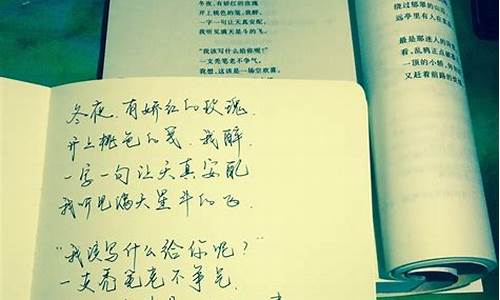 冬夜,有娇红的玫瑰
开上桃色的笺,我醉,
一字一句让天真安配,
我听见满天星斗的飞。
“我该写什么给你呢?”
一支秃笔老不争气,
我想,这该是一场空欢喜。
绕过郁翠的山
远亭里有人在
最是那迷人的
看,乱鸦正点破
一顶的小轿,
又赶着前路的
冬夜,有娇红的玫瑰,
开上桃色的笺,我醉,
一字一句让天真安配
我听见满天星斗的飞.
“我该写什么给你呢?”
一支秃笔老不争气,